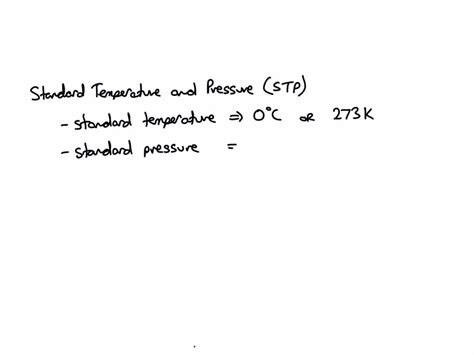 Standard Temperature and Pressure (STP)
- standard temperature ⇒ 0°C or 273K
- standard pressure =